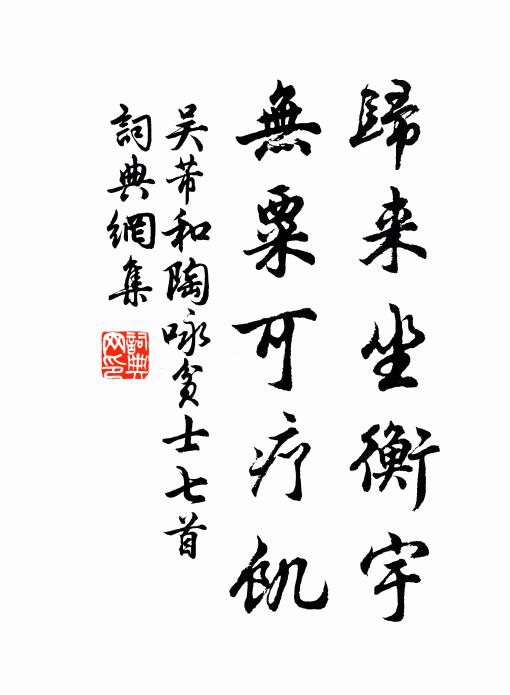 歸来坐衡宇
無粟可疗飢
吴芾和陶咏貧士七首
詞典網集
詞典網印